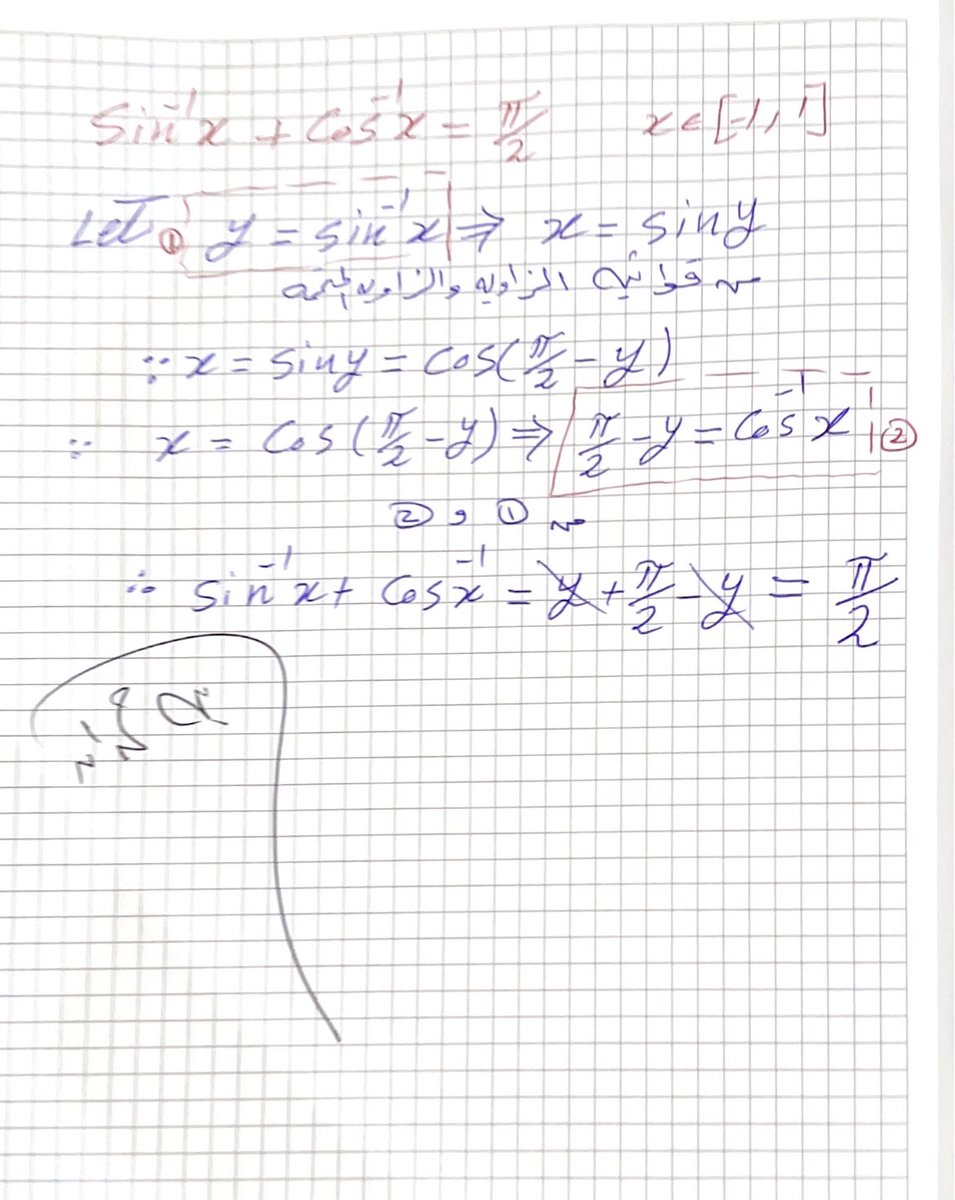 Sin⁻¹x + Cos⁻¹x = π/2 x ∈ [-1, 1]
Let ① y = sin⁻¹x ⇒ x = sin y
من قوانين الزاويه والزاويه المتممه
∵ x = sin y = cos(π/2 - y)
∵ x = Cos(π/2 - y) ⇒ π/2 - y = Cos⁻¹x ②
من ① و ②
∴ sin⁻¹x + Cos⁻¹x = y + π/2 - y = π/2